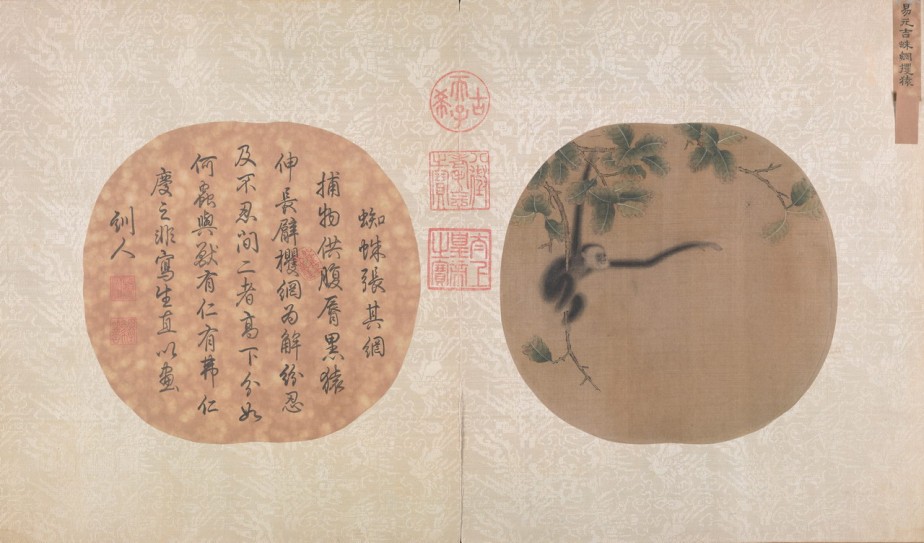 易元吉蛛網攫猿
古希天子
八徵耄念之寶
太上皇帝之寶
蜘蛛張其網
捕物供腹脣黑猿
伸長臂攫網為解紛忍
及不忍間二者高下分如
何蟲與獸有仁有弗仁
慶之非寫生直以畫
訓人